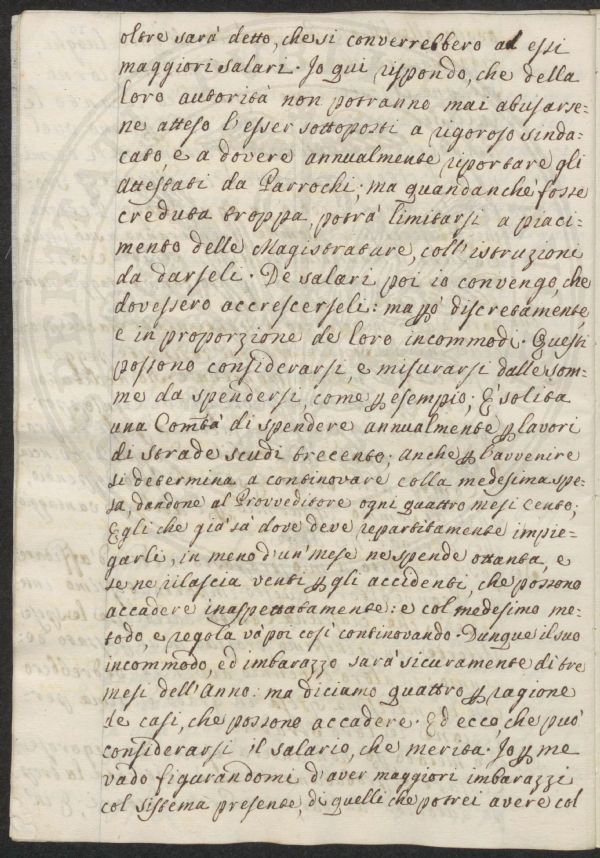 oltre sarà detto, che si converrebbero ad essi
maggiori salari. Io qui rispondo, che della
loro autorità non potranno mai abusarse=
ne atteso l'esser sottoposti a rigoroso sinda=
cato, e a dovere annualmente riportare gli
attestati da Parrochi; ma quandanche fosse
creduta troppa, potrà limitarsi a piaci=
mento delle Magistrature, coll'istruzioni
da darseli. De salari poi io convengo, che
dovessero accrescerseli: ma però discretamente,
e in proporzione de loro incommodi. Questi
possono considerarsi, e misurarsi dalle som=
me da spendersi, come p esempio; E' solita
una Comtà di spendere annualmente p lavori
di strade scudi trecento; anche p l'avvenire
si determina a continovare colla medesima spe=
sa, dandone al Provveditore ogni quattro mesi cento;
Egli che già sa dove deve repartitamente impie=
garli, in meno d'un mese ne spende ottanta, e
se ne rilascia venti p gli accidenti, che possono
accadere inaspettatamente: e col medesimo me=
todo, e regola và poi così continovando. Dunque il suo
incommodo, ed imbarazzo sarà sicuramente di tre
mesi dell'Anno: ma diciamo quattro p ragione
de casi, che possono accadere. Ed ecco, che può
considerarsi il salario, che merita. Io p me
vado figurandomi d'aver maggiori imbarazzi
col sistema presente, di quelli che potrei avere col